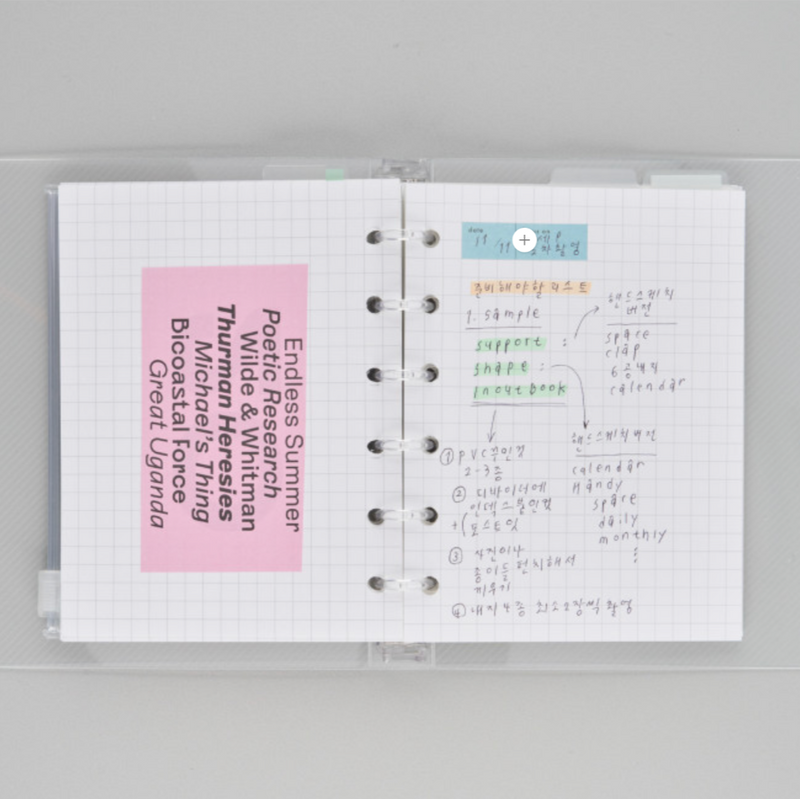 Endless Summer
Poetic Research
Wilde & Whitman
Thurman Heresies
Michael's Thing
Bicoastal Force
Great Uganda
date
11 / 11
촬영
준비해야할 리스트
1. sample
support :
shape :
inout book
핸드스케치
버전
space
clap
6공내지
calendar
핸드스케치버전
calendar
handy
space
daily
monthly
:
① pvc쭈인것
2-3종
② 디바이더에
인덱스붙인것
+ ( 포스트잇
③ 사진이나
종이들 펀치해서
끼우기
④ 내지 4종 최소 2장씩 촬영